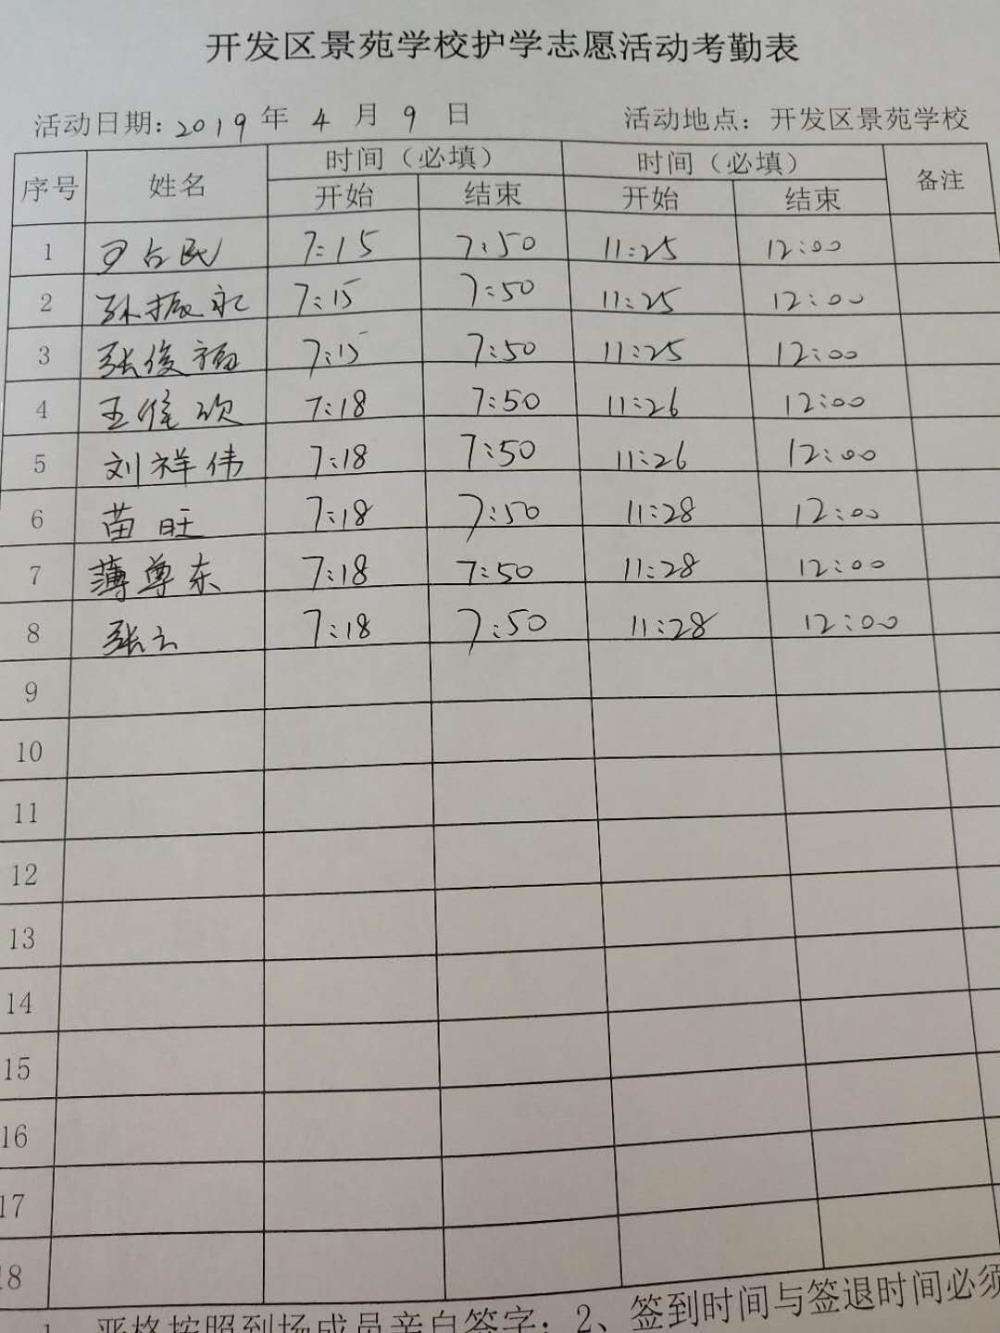 开发区景苑学校护学志愿活动考勤表
活动日期: 2019 年 4 月 9 日 活动地点: 开发区景苑学校
序号 姓名 时间（必填） 时间（必填） 备注
开始 结束 开始 结束
1 尹占民 7:15 7:50 11:25 12:00
2 孙振永 7:15 7:50 11:25 12:00
3 张俊福 7:15 7:50 11:25 12:00
4 王 7:18 7:50 11:26 12:00
5 刘祥伟 7:18 7:50 11:26 12:00
6 苗旺 7:18 7:50 11:28 12:00
7 薄尊东 7:18 7:50 11:28 12:00
8 张云 7:18 7:50 11:28 12:00
9
10
11
12
13
14
15
16
17
18
1、严格按照到场成员亲自签字；2、签到时间与签退时间必须